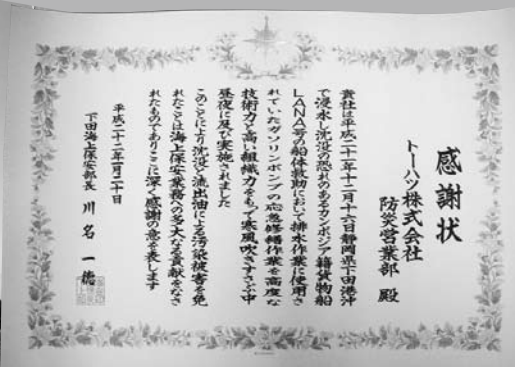 感謝状
トーハツ株式会社
防災営業部 殿
貴社は平成二十一年十二月十六日静岡県下田港沖
で浸水し沈没の恐れのあるカンボジア籍貨物船
LANA号の船体救助において排水作業に使用さ
れていたガソリンポンプの応急修繕作業を高度な
技術力と高い組織力をもって寒風吹きすさぶ中
昼夜に及び実施されました
このことにより沈没と流出油による汚染被害を免
れたことは海上保安業務への多大な貢献をなさ
れたものでありここに深く感謝の意を表します
平成二十二年一月二十日
下田海上保安部長 川名 一徳